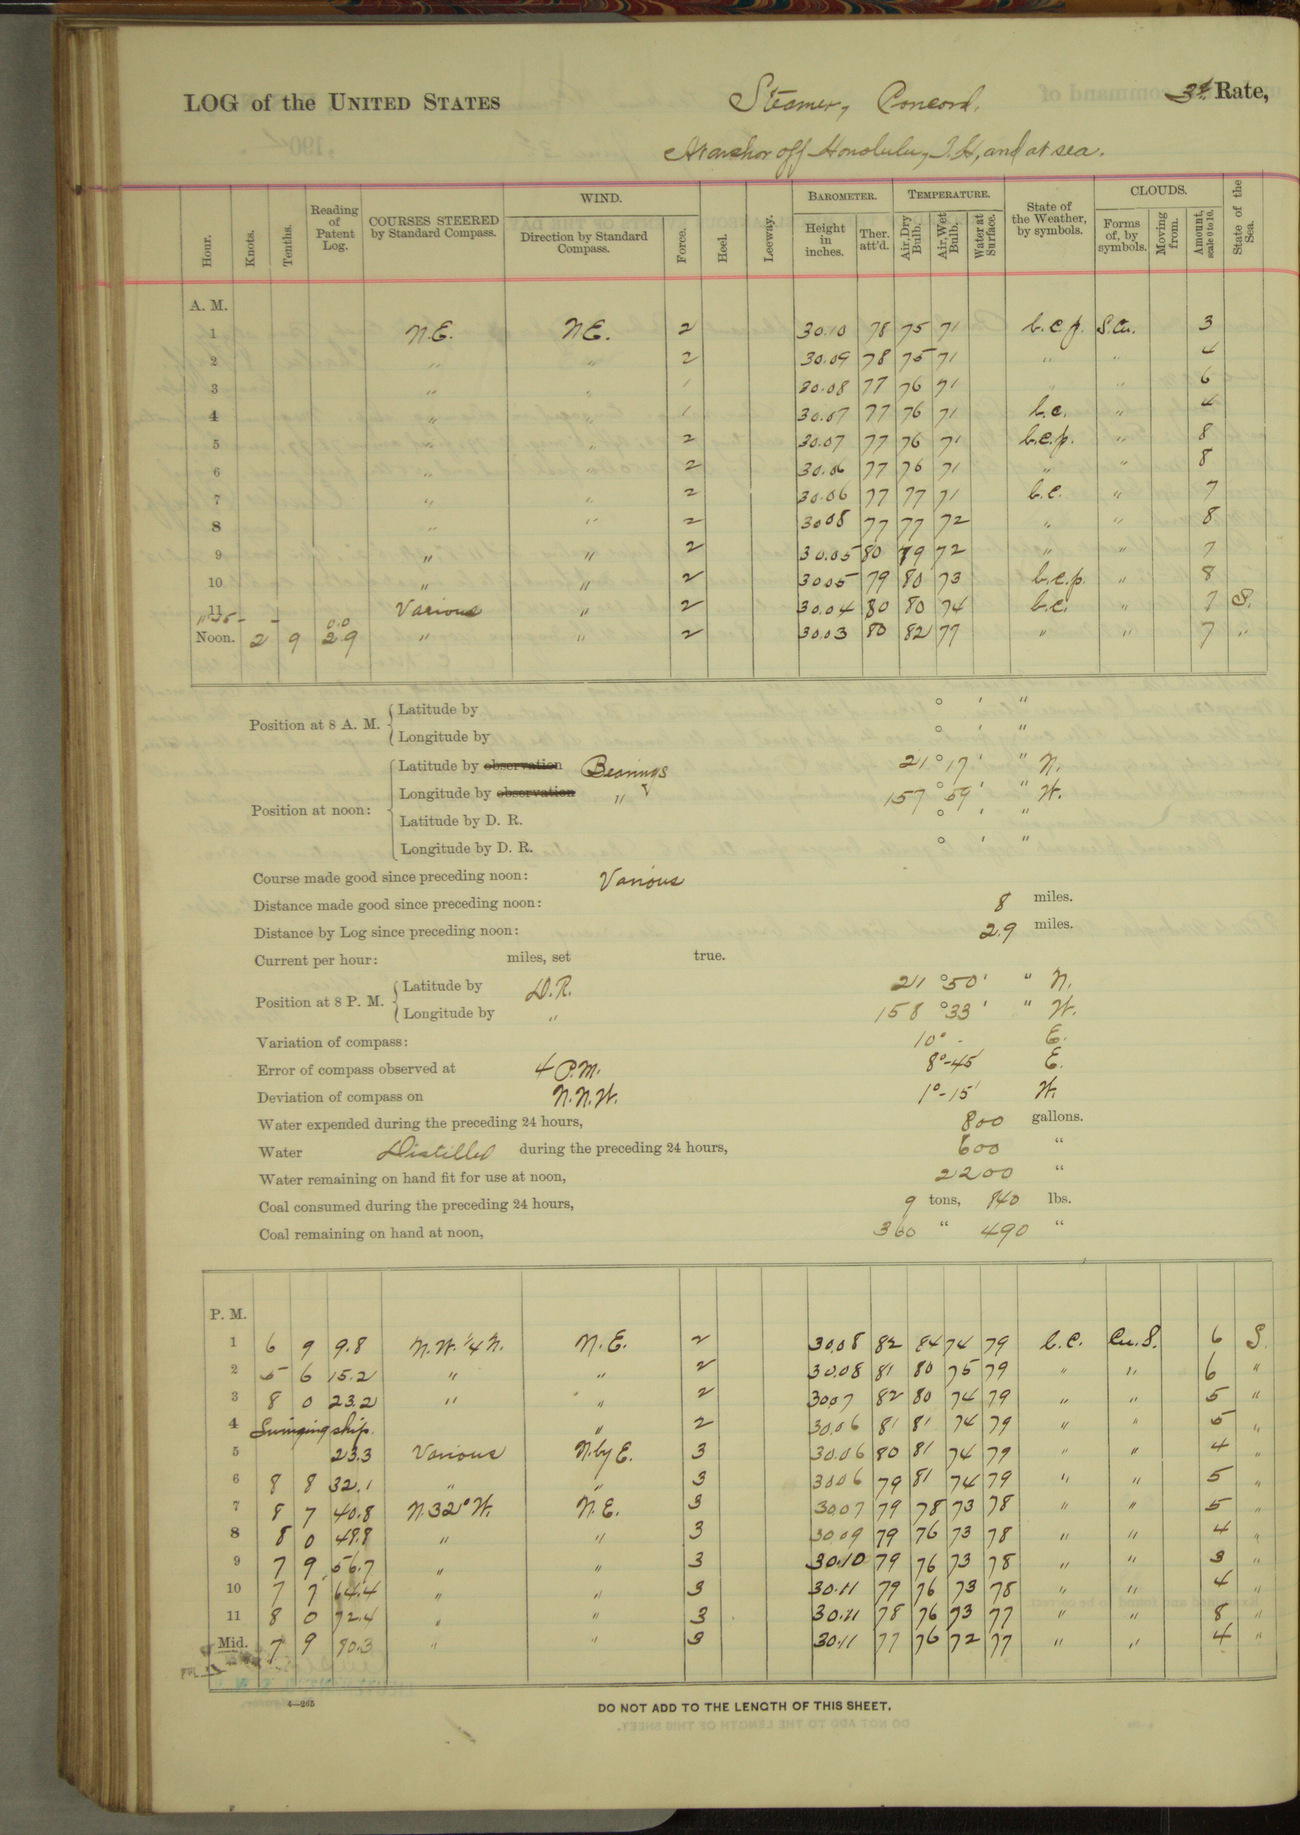 LOG of the UNITED STATES Steamer, Concord, 3d. Rate,
At anchor off Honolulu, T.H, and at sea.
Hour. Knots. Tenths. Reading of Patent Log. COURSES STEERED by Standard Compass. WIND. Direction by Standard Compass. Force. Heel. Leeway. BAROMETER. Height in inches. Ther. att'd. TEMPERATURE. Air, Dry Bulb. Air, Wet Bulb. Water at Surface. State of the Weather, by symbols. CLOUDS. Forms of, by symbols. Moving from. Amount, scale 0 to 10. State of the Sea.
A. M.
1 N.E. N.E. 2 30.10 78 75 71 b.c.p. S.Cu. 3
2 " " 2 30.09 78 75 71 " " 4
3 " " 1 30.08 77 76 71 " " 6
4 " " 1 30.07 77 76 71 b.c. " 4
5 " " 2 30.07 77 76 71 b.c.p. " 8
6 " " 2 30.06 77 76 71 " " 8
7 " " 2 30.06 77 77 71 b.c. " 7
8 " " 2 30.08 77 77 72 " " 8
9 " " 2 30.05 80 79 72 " " 7
10 " " 2 30.05 79 80 73 b.c.p. " 8
11 Various " 2 30.04 80 80 74 b.c. " 7 S.
11-35 - - 0.0
Noon. 2 9 2.9 " " 2 30.03 80 82 77 " " 7 "
Position at 8 A. M. Latitude by ° ' "
Longitude by ° ' "
Position at noon: Latitude by observation Bearings 21° 17' " N.
Longitude by observation " 157° 59' " W.
Latitude by D. R. ° ' "
Longitude by D. R. ° ' "
Course made good since preceding noon: Various
Distance made good since preceding noon: 8 miles.
Distance by Log since preceding noon: 2.9 miles.
Current per hour: miles, set true.
Position at 8 P. M. Latitude by D.R. 21° 50' " N.
Longitude by " 158° 33' " W.
Variation of compass: 10° - E.
Error of compass observed at 4 P.M. 8°-45' E.
Deviation of compass on N.N.W. 1°-15' W.
Water expended during the preceding 24 hours, 800 gallons.
Water Distilled during the preceding 24 hours, 600 "
Water remaining on hand fit for use at noon, 2200 "
Coal consumed during the preceding 24 hours, 9 tons, 840 lbs.
Coal remaining on hand at noon, 360 " 490 "
P. M.
1 6 9 9.8 N.W. 1/4 N. N.E. 2 30.08 82 84 74 79 b.c. Cu.S. 6 S.
2 5 6 15.2 " " 2 30.08 81 80 75 79 " " 6 "
3 8 0 23.2 " " 2 30.07 82 80 74 79 " " 5 "
4 Swinging ship. " 2 30.06 81 81 74 79 " " 5 "
5 23.3 Various N.by E. 3 30.06 80 81 74 79 " " 4 "
6 8 8 32.1 " " 3 30.06 79 81 74 79 " " 5 "
7 8 7 40.8 N.32° W. N.E. 3 30.07 79 78 73 78 " " 5 "
8 8 0 48.8 " " 3 30.09 79 76 73 78 " " 4 "
9 7 9 56.7 " " 3 30.10 79 76 73 78 " " 3 "
10 7 7 64.4 " " 3 30.11 79 76 73 78 " " 4 "
11 8 0 72.4 " " 3 30.11 78 76 73 77 " " 8 "
Mid. 7 9 80.3 " " 3 30.11 77 76 72 77 " " 4 "
4—265
DO NOT ADD TO THE LENGTH OF THIS SHEET.